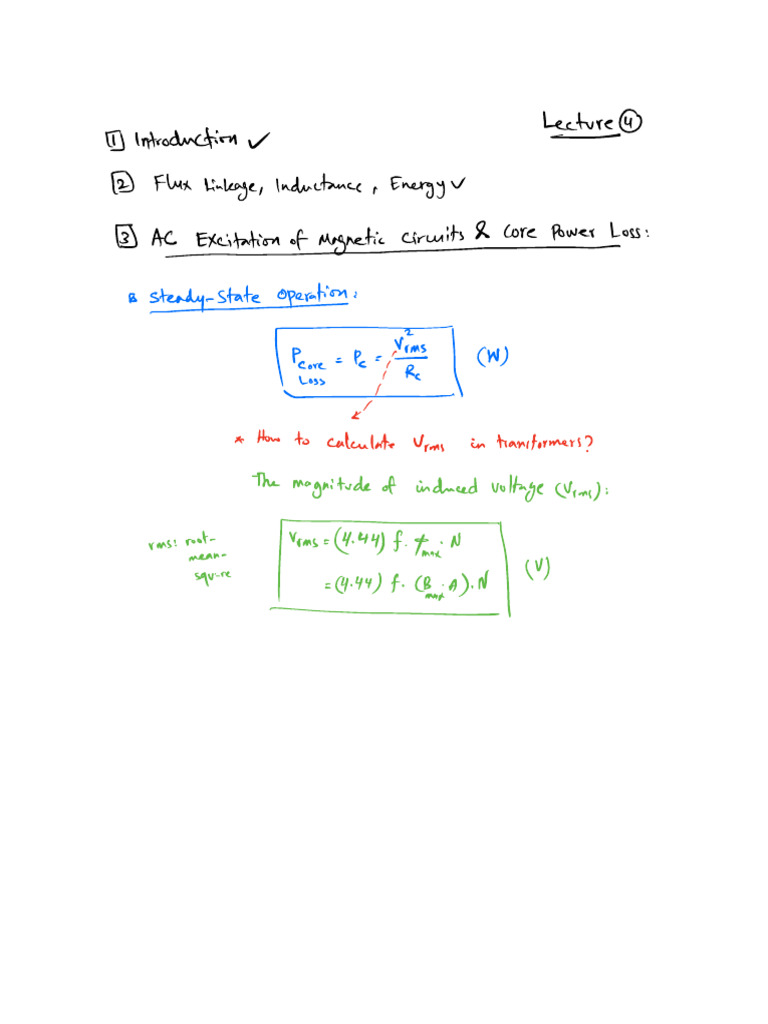 Lecture ④
1 Introduction ✓
2 Flux Linkage, Inductance, Energy ✓
3 AC Excitation of Magnetic Circuits & Core Power Loss:
Steady-State Operation:
P_Core Loss = P_c = V_rms² / R_c (W)
* How to calculate V_rms in transformers?
The magnitude of induced voltage (V_rms):
rms: root-
mean-
square
V_rms = (4.44) f · φ_max · N
= (4.44) f · (B_max · A) · N (V)